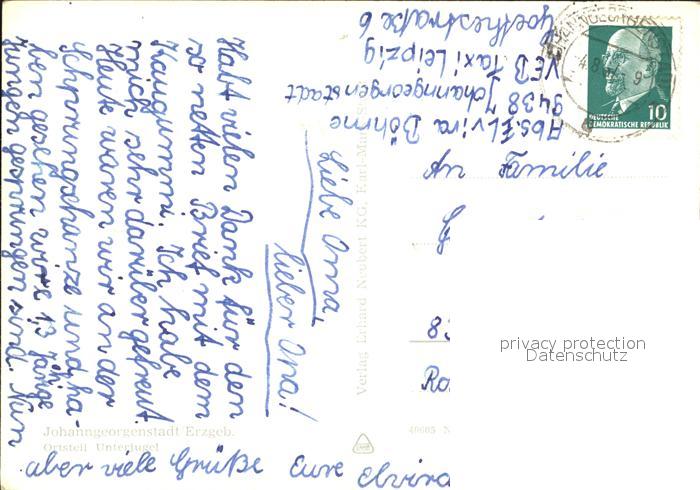 Abs. Elvira Böhme
9438 Johanngeorgenstadt
VEB Taxi Leipzig
Goethestraße 6
DEUTSCHE
DEMOKRATISCHE REPUBLIK
10
An Familie
Liebe Oma,
lieber Opa!
Habt vielen Dank für den
so netten Brief mit dem
Kaugummi. Ich habe
mich sehr darüber gefreut.
Heute waren wir an der
Schprungschanze und ha-
ben gesehen wie 13 Jährige
Jungen gesprungen sind. Nun
aber viele Grüße Eure Elvira
Verlag Erhard Neubert KG, Karl-Marx-S
Johanngeorgenstadt Erzgeb.
Ortsteil Unterjugel
privacy protection
Datenschutz